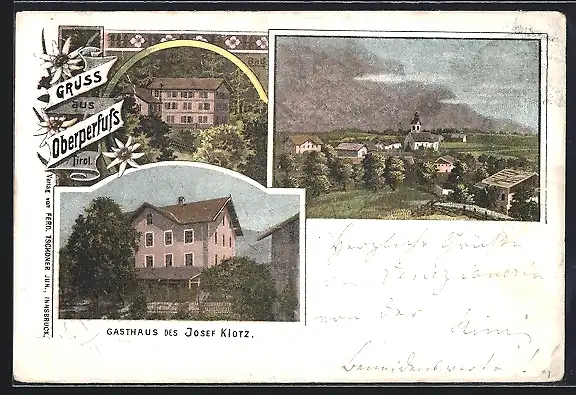 GRUSS
aus
Oberperfuss
Tirol.
Bad
Verlag von FERD. TSCHONER JUN., INNSBRUCK.
GASTHAUS DES JOSEF KLOTZ.
Herzliche Grüße
von der